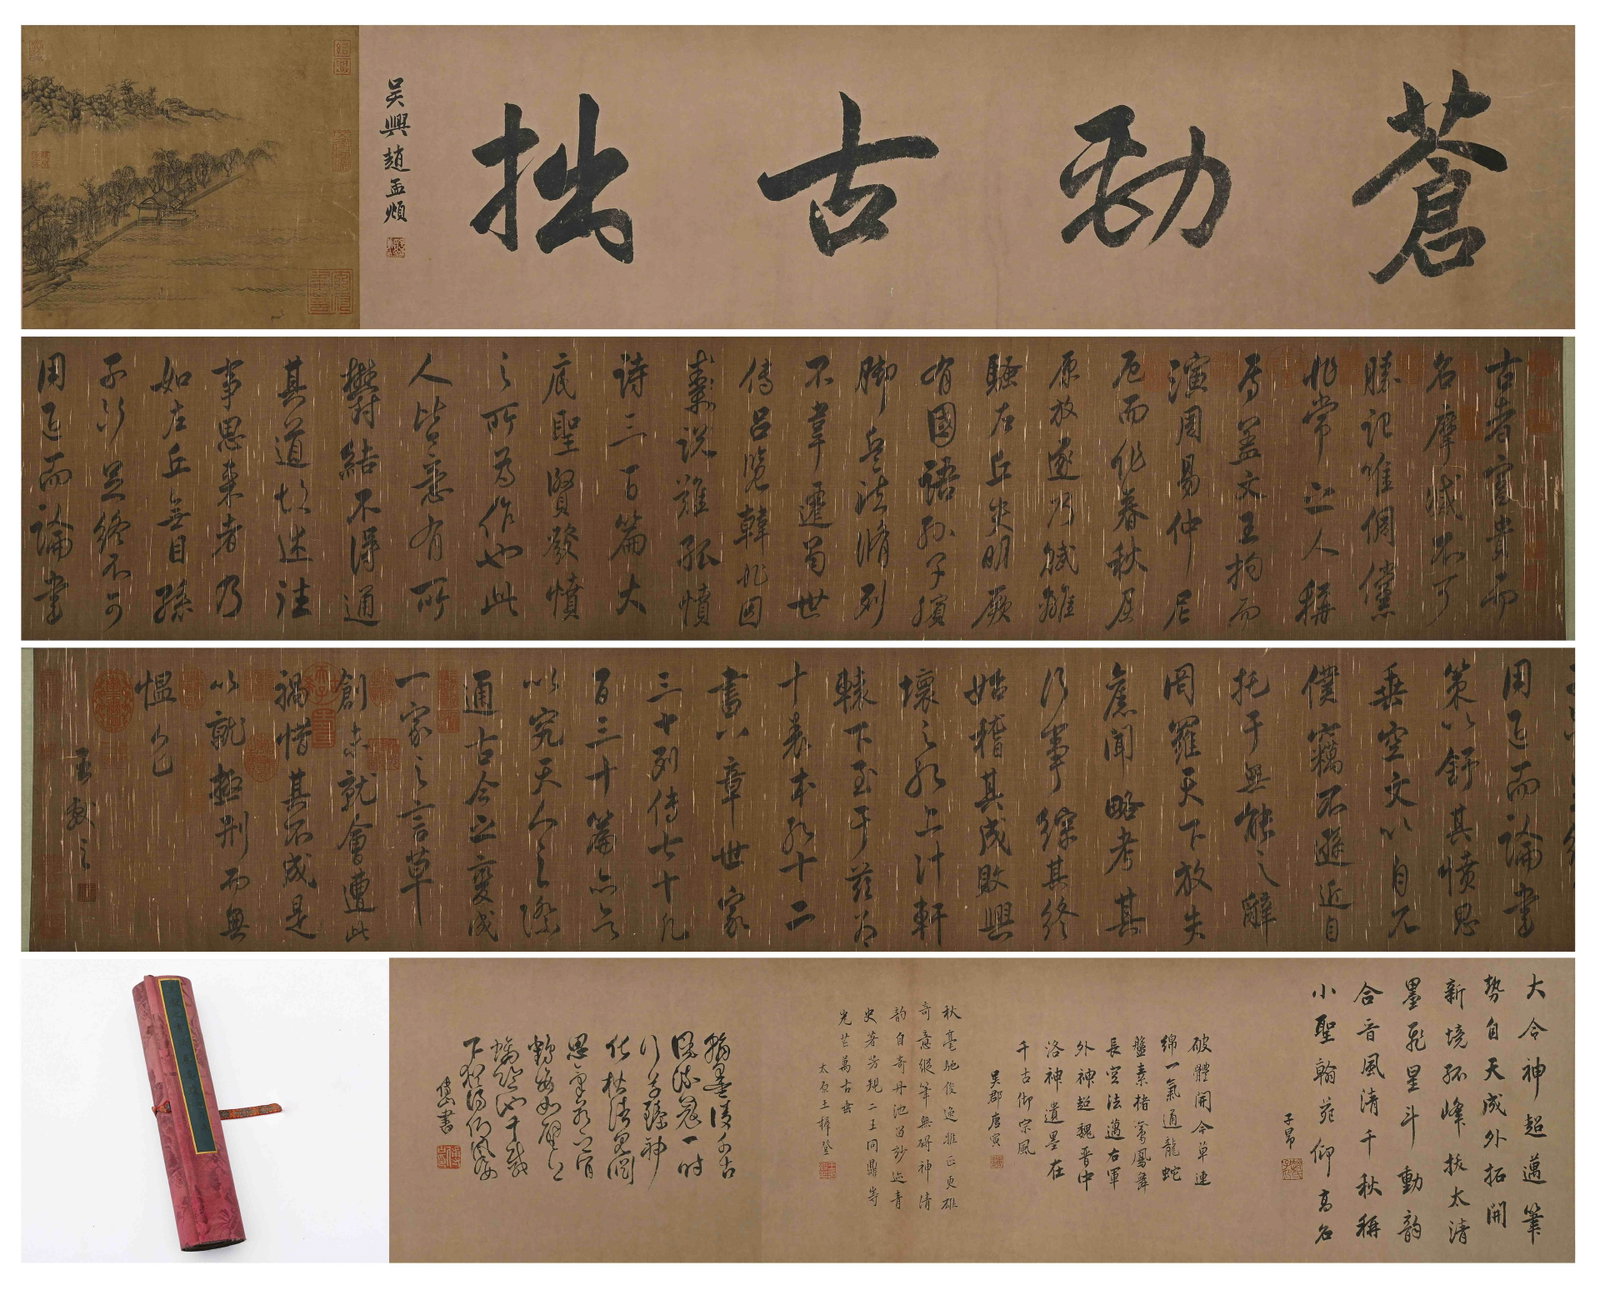 蒼勁古拙
吴興趙孟頫
古者富貴而
名摩滅不可
勝記唯倜儻
非常之人稱
焉蓋文王拘而
演周易仲尼
厄而作春秋屈
原放逐乃賦離
騷左丘失明厥
有國語孫子臏
脚兵法脩列
不韋遷蜀世
傳呂覽韓非囚
秦說難孤憤
詩三百篇大
底聖賢發憤
之所為作也此
人皆意有所
鬱結不得通
其道故述往
事思來者乃
如左丘無目孫
子斷足終不可
用退而論書
用退而論書
策以舒其憤思
垂空文以自見
僕竊不遜近自
托于無能之辭
罔羅天下放失
舊聞略考其
行事綜其終
始稽其成敗興
壞之紀上計軒
轅下至于茲為
十表本紀十二
書八章世家
三十列傳七十凡
百三十篇亦欲
以究天人之際
通古今之變成
一家之言草
創未就會遭此
禍惜其不成是
以就極刑而無
慍色
王獻之
大令神超邁筆
勢自天成外拓開
新境孤峰接太清
墨飛星斗動韵
合音風清千秋稱
小聖翰苑仰高名
子昂
破體開今草連
綿一氣通龍蛇
盤素楮鸞鳳舞
長空法邁右軍
外神超魏晉中
洛神遺墨在
千古仰宗風
吴郡唐寅
秋毫馳俊逸雅正更雄
奇意縱筆無碍神清
韵自奇丹池留妙迹青
史著芳規二王同鼎峙
光芒萬古垂
太原王穉登
翰墨清千古
風流冠一時
傅山書